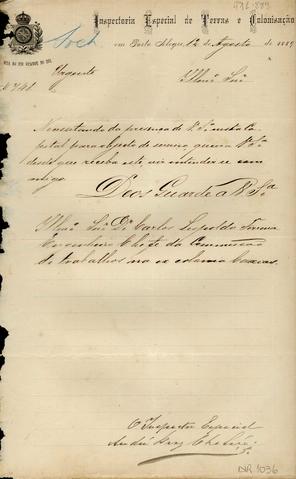 Inspectoria Especial de Terras e Colonisação
em Porto Alegre, 12 de Agosto de 1889
Urgente
Illmo Snr.
Necessitando da presença de V. Sa. nesta Ca-
pital para objecto de serviço queira V. Sa.
desde que receba este, vir entender-se com-
migo.
Deos Guarde a V. Sa
Illmo. Snr. Dr. Carlos Leopoldo
Engenheiro Chefe da Commissão
de trabalhos na ex colonia Caxias
O Inspector Especial
NR. 1036